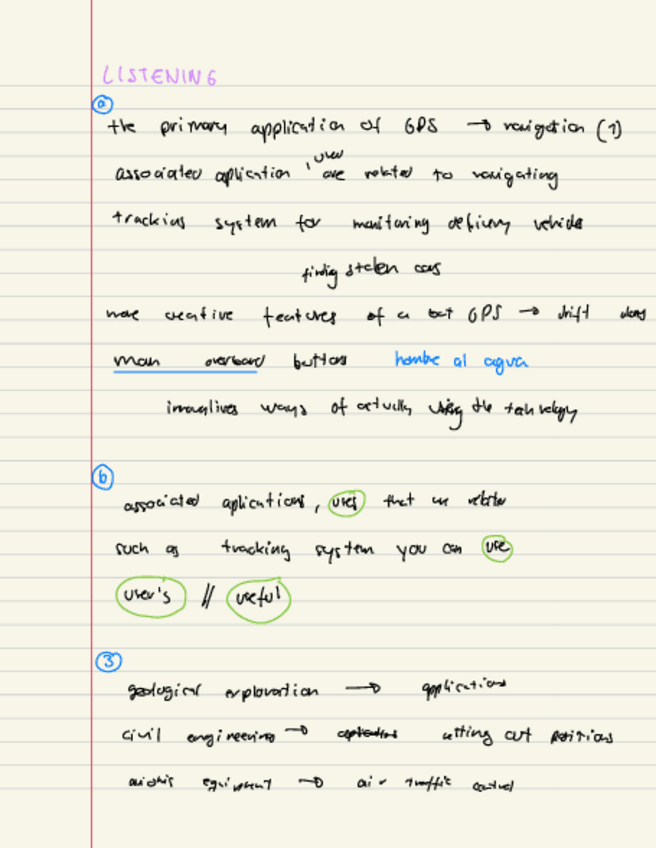 LISTENING
a
the primary application of GPS → navigation (1)
associated aplication , uses are related to navigating
tracking system for monitoring delivery vehicles
finding stolen cars
more creative features of a boat GPS → drift along
man overboard buttons hombre al agua
ways of actually using the technology
b
associated aplications, uses that are related
such as tracking system you can use
user's // useful
3
geological exploration → applications
civil engineering → setting out positions
equipment → air traffic control